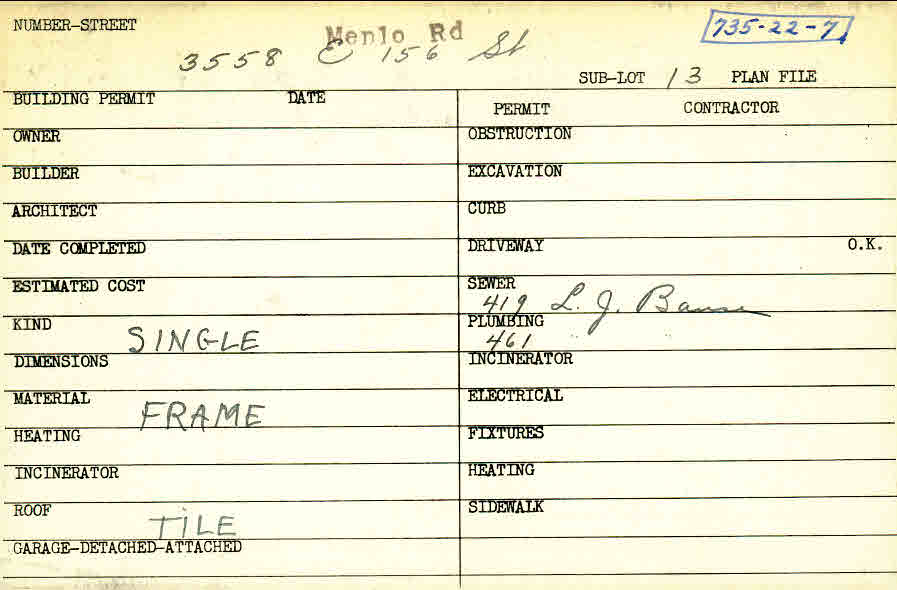 NUMBER-STREET
Menlo Rd
735-22-7
3558 E 156 St
SUB-LOT 13 PLAN FILE
BUILDING PERMIT DATE
OWNER
BUILDER
ARCHITECT
DATE COMPLETED
ESTIMATED COST
KIND SINGLE
DIMENSIONS
MATERIAL FRAME
HEATING
INCINERATOR
ROOF TILE
GARAGE-DETACHED-ATTACHED
PERMIT CONTRACTOR
OBSTRUCTION
EXCAVATION
CURB
DRIVEWAY O.K.
SEWER
419 L. J.
PLUMBING
461
INCINERATOR
ELECTRICAL
FIXTURES
HEATING
SIDEWALK